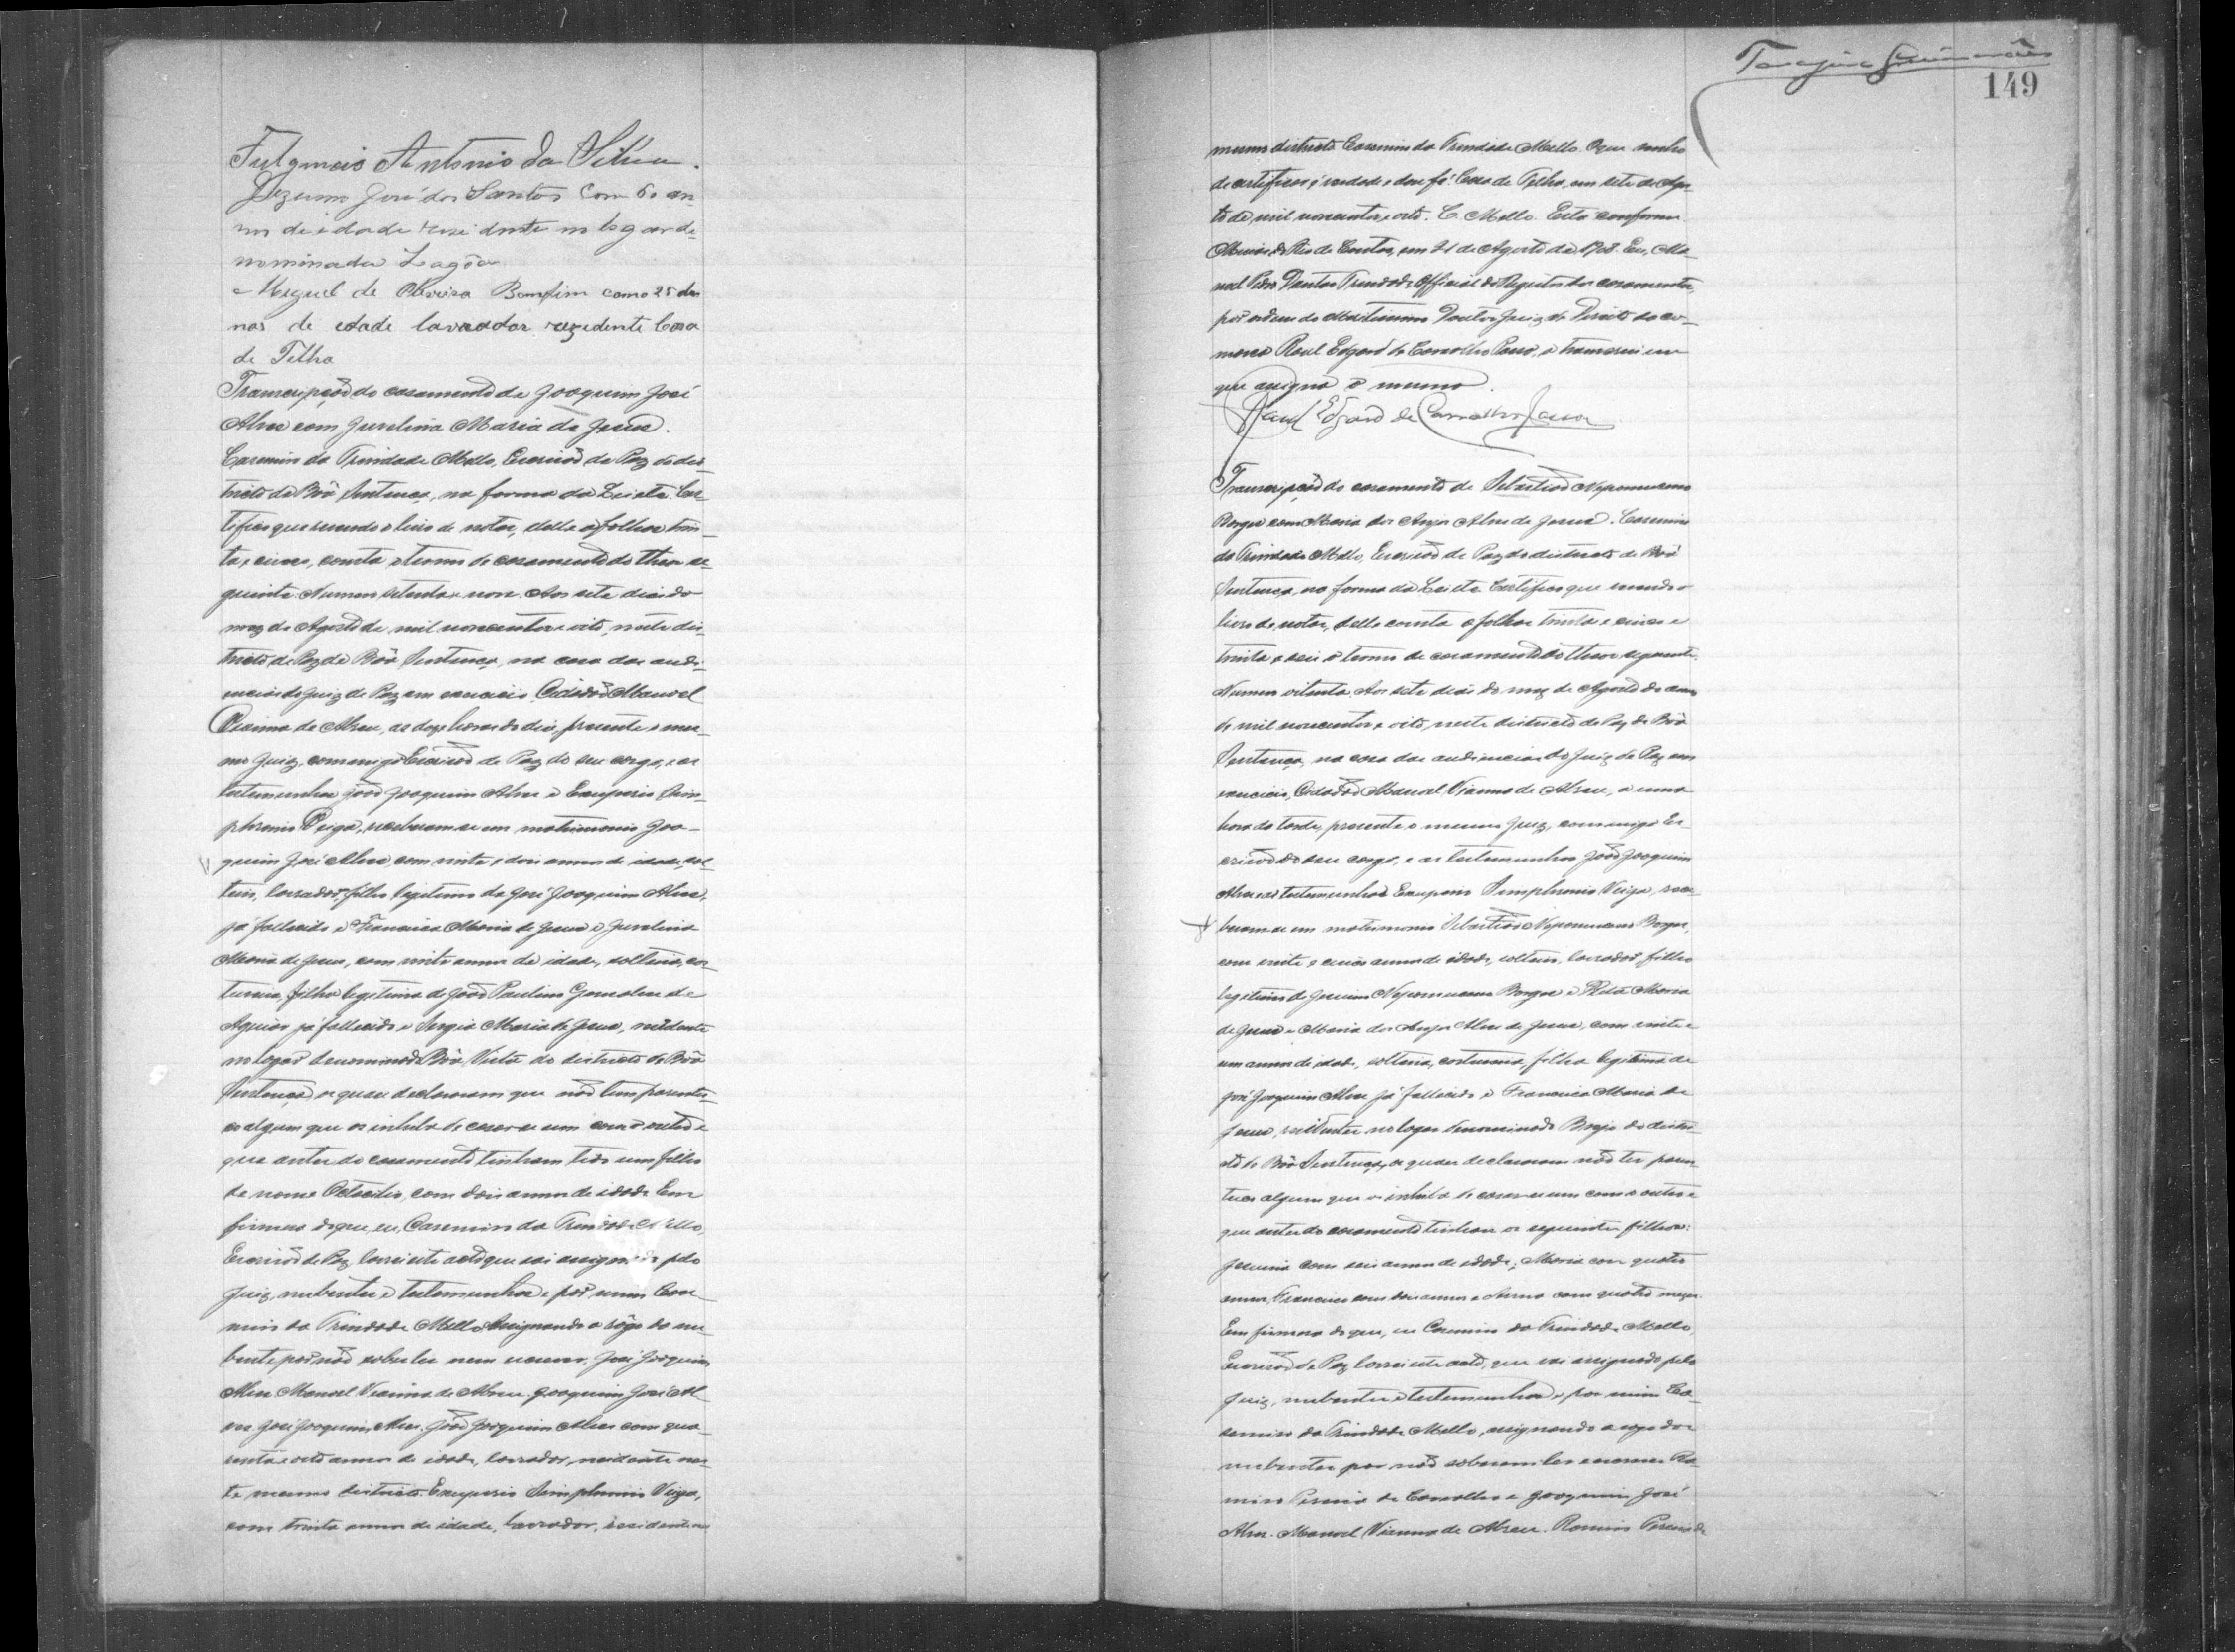 Fulgencio Antonio da Silva.
Jezuino José dos Santos com 60 an-
nos de idade residente no logar de-
nominado Lagôa
Miguel de Oliveira Bomfim com 25 an
nos de edade lavrador rezedente Casa
de Telha
Transcripção do casamento de Joaquim José
Alves com Juvelina Maria de Jesus.
Casemiro da Trindade Mello, Escrivão de Paz do dis-
tricto de Bôa Sentença, na forma da Lei etc. Cer-
tifico que revendo o livro de notas, delle a folhas trin-
ta e cinco, consta o termo de casamento do theor se-
guinte: Numero setenta e nove. Aos sete dias do
mez de Agosto de mil novecentos e oito, neste dis-
tricto de Paz de Bôa Sentença, na casa das audi-
encias do Juiz de Paz em exercicio, Cidadão Manoel
Vianna de Abreu, as doze horas do dia, presente o mes-
mo Juiz, commigo Escrivão de Paz do seu cargo, e as
testemunhas João Joaquim Alves e Exuperio Sim-
phronio Veiga, receberam-se em matrimonio Joa-
quim José Alves, com vinte e dois annos de idade, sol-
teiro, lavrador, filho legitimo de José Joaquim Alves,
já fallecido e Francisca Maria de Jesus e Juvelina
Maria de Jesus, com vinte annos de idade, solteira, cos-
tureira, filha legitima de João Paulino Gonsalves de
Aguiar já fallecido e Sergia Maria de Jesus, residente
no logar denominado Bôa Vista do districto de Bôa
Sentença, os quaes declararam que não tem parentes-
co algum que os inhiba de casar-se um com o outro e
que antes do casamento tinham tido um filho
de nome Octacilio, com dois annos de idade. Em
firmeza do que, eu, Casemiro da Trindade Mello,
Escrivão de Paz, lavrei este acto que vai assignado pelo
Juiz, nubentes e testemunhas e por mim Case
miro da Trindade Mello. Assignando a rôgo da nu-
bente por não saber ler nem escrever, José Joaquim
Alves. Manoel Vianna de Abreu. Joaquim José Al
ves. José Joaquim Alves. João Joaquim Alves com qua-
renta e oito annos de idade, lavrador, residente nes-
te mesmo districto. Exuperio Simphronio Veiga,
com trinta annos de idade, lavrador, residente no
149
mesmo districto. Casemiro da Trindade Mello. O que venho
de certificar é verdade e dou fé. Casa de Telha, em sete de Agos-
to de mil novecentos e oito. C. Mello. Está conforme.
Rio de Contas, em 21 de Agosto de 1908. Eu, Ma-
noel Pedro Dantas Trindade Official do Registro dos casamentos,
por ordem do Meritissimo Doutor Juiz de Direito da co-
marca Raul Edgard de Carvalho, o transcrevi em
que assigna o mesmo.
Raul Edgard de Carvalho
Transcripção do casamento de Sebastião Nepomuceno
Borges com Maria dos Anjos Alves de Jesus. Casemiro
da Trindade Mello, Escrivão de Paz do districto de Bôa
Sentença, na forma da Lei etc. Certifico que revendo o
livro de notas, delle consta a folhas trinta e cinco e
trinta e seis o termo de casamento do theor seguinte:
Numero oitenta. Aos sete dias do mez de Agosto do anno
de mil novecentos e oito, neste districto de Paz de Bôa
Sentença, na casa das audiencias do Juiz de Paz em
exercicio, Cidadão Manoel Vianna de Abreu, a uma
hora da tarde, presente o mesmo Juiz, commigo Es-
crivão do seu cargo, e as testemunhas João Joaquim
Alves e as testemunhas Exuperio Simphronio Veiga, rece-
beram-se em matrimonio Sebastião Nepomuceno Borges,
com vinte e cinco annos de idade, solteiro, lavrador, filho
legitimo de Nepomuceno Borges e Rita Maria
de Jesus e Maria dos Anjos Alves de Jesus, com vinte e
um annos de idade, solteira, costureira, filha legitima de
José Joaquim Alves já fallecido e Francisca Maria de
Jesus, residentes no logar denominado Brejo do distri-
cto de Bôa Sentença, os quaes declararam não ter paren-
tesco algum que os inhiba de casar-se um com o outro e
que antes do casamento tinham os seguintes filhos:
com seis annos de idade; Maria com quatro
annos, Francisco com dois annos e Anna com quatro mezes.
Em firmeza do que, eu Casemiro da Trindade Mello,
Escrivão de Paz lavrei este acto, que vai assignado pelo
Juiz, nubentes e testemunhas e por mim Ca-
semiro da Trindade Mello, assignando a rogo dos
nubentes por não saberem ler e escrever Ra-
miro de Carvalho e Joaquim José
Alves. Manoel Vianna de Abreu. Ramiro